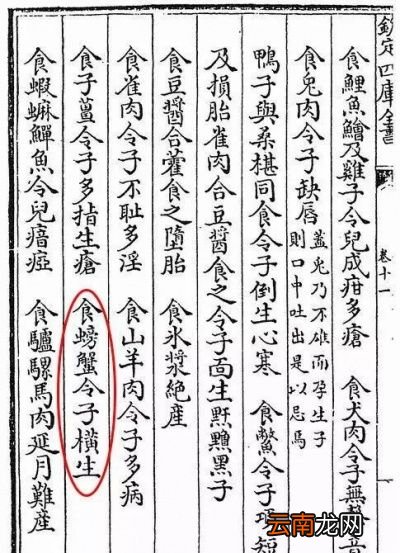 欽定四庫全書
卷十一
食鯉魚鱠及雞子令兒成疳多瘡 食犬肉令子無聲音
食兔肉令子缺唇 蓋兔乃不雄而孕生子
則口中吐出是以忌焉
鴨子與桑椹同食令子倒生心寒 食鱉令子項短
及損胎雀肉合豆醬食之令子面生䵟黑子
食豆醬合藿食之墮胎 食氷漿絶産
食雀肉令子不耻多淫 食山羊肉令子多病
食子薑令子多指生瘡 食螃蟹令子橫生
食蝦蟆鱓魚令兒瘖瘂 食驢騾馬肉延月難産
云南龙网